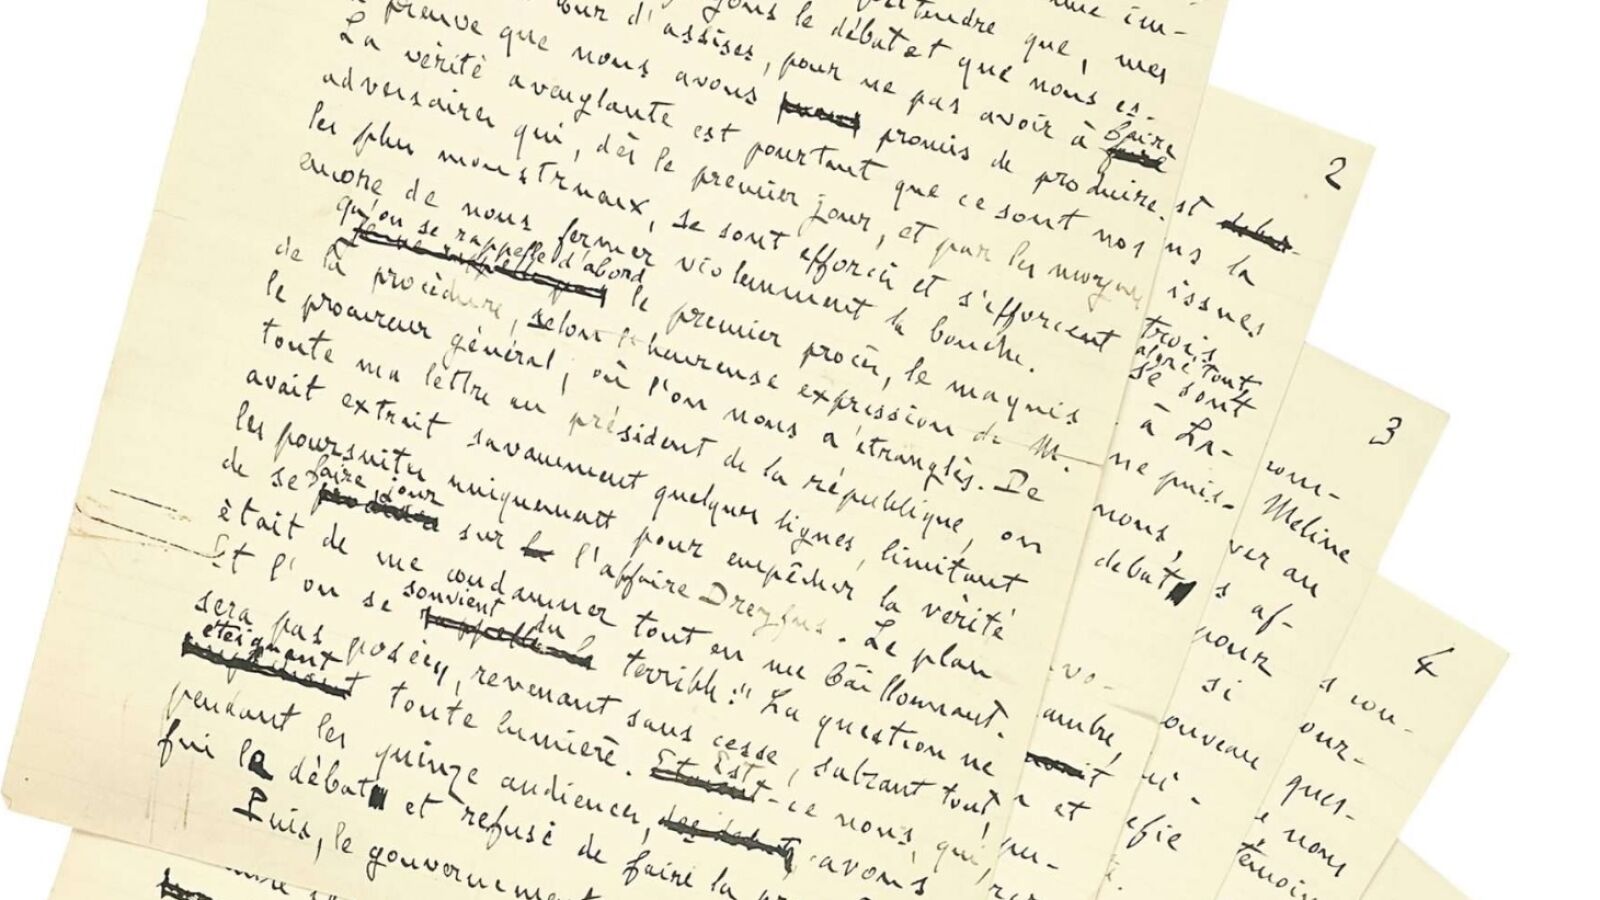 que, mes
le débat et que nous es-
d'assises, pour ne pas avoir à faire
preuve que nous avons promis de produire.
La vérité aveuglante est pourtant que ce sont nos
adversaires qui, dès le premier jour, et par les moyens
les plus monstrueux, se sont efforcés et s'efforcent
encore de nous fermer violemment la bouche.
qu'on se rappelle d'abord le premier procès, le maquis
de la procédure, selon l'heureuse expression de M.
le procureur général, où l'on nous a étranglés. De
toute ma lettre au président de la république, on
avait extrait savamment quelques lignes, limitant
les poursuites uniquement pour empêcher la vérité
de se faire jour sur l'affaire Dreyfus. Le plan
était de me condamner tout en me bâillonnant.
Et l'on se souvient du terrible: "La question ne
sera pas posée", revenant sans cesse, sabrant tout,
éteignant toute lumière. Est-ce nous, qui,
pendant les quinze audiences, avons
fui le débat et refusé de faire la
Puis, le gouvernement
2
st
ns la
issues
trois
se sont
à La-
ne puis-
nous,
debat
3
com-
Meline
ver au
s af-
pour
si
ouveau
4
s cou-
our-
ques-
nous
témoin